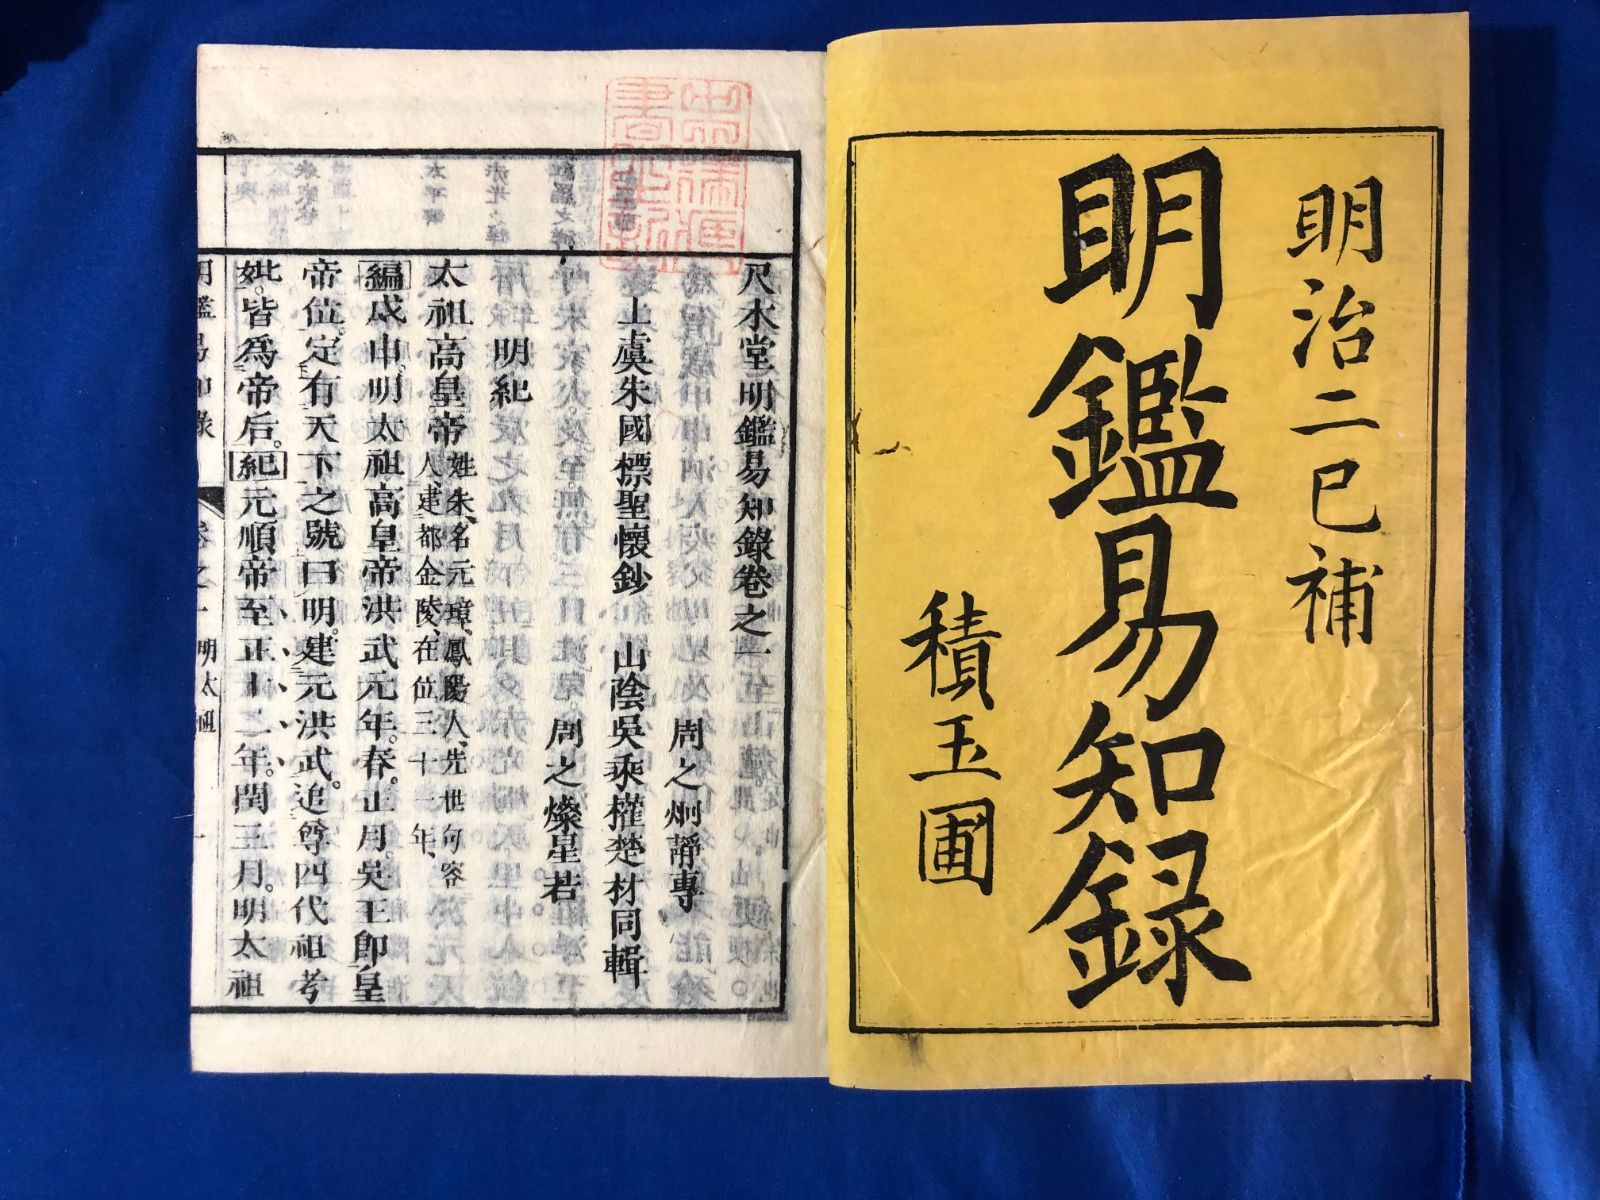 明治二巳補
明鑑易知録
積玉圃
尺木堂明鑑易知錄卷之一
周之炯靜專
上虞朱國標聖懷鈔 山陰吳乘權楚材同輯
周之燦星若
明紀
太祖高皇帝 姓朱、名元璋、鳳陽人、先世句容
人、建都金陵、在位三十一年、
編戊申。明太祖高皇帝洪武元年。春。正月。吳王卽皇
帝位。定有天下之號曰明。建元洪武。追尊四代祖考
妣。皆爲帝后。紀元順帝至正十二年。閏三月。明太祖
明鑑易知錄 卷之一 明太祖 一